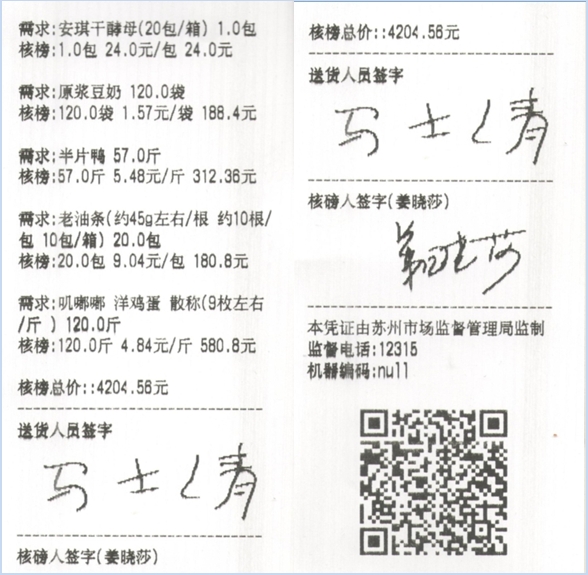 需求:安琪干酵母(20包/箱) 1.0包
核榜:1.0包 24.0元/包 24.0元
需求:原浆豆奶 120.0袋
核榜:120.0袋 1.57元/袋 188.4元
需求:半片鸭 57.0斤
核榜:57.0斤 5.48元/斤 312.36元
需求:老油条(约45g左右/根 约10根/
包 10包/箱) 20.0包
核榜:20.0包 9.04元/包 180.8元
需求:叽嘟嘟 洋鸡蛋 散称(9枚左右
/斤 ) 120.0斤
核榜:120.0斤 4.84元/斤 580.8元
核榜总价::4204.56元
送货人员签字
核磅人签字(姜晓莎)
核榜总价::4204.56元
送货人员签字
核磅人签字(姜晓莎)
本凭证由苏州市场监督管理局监制
监督电话:12315
机器编码:null